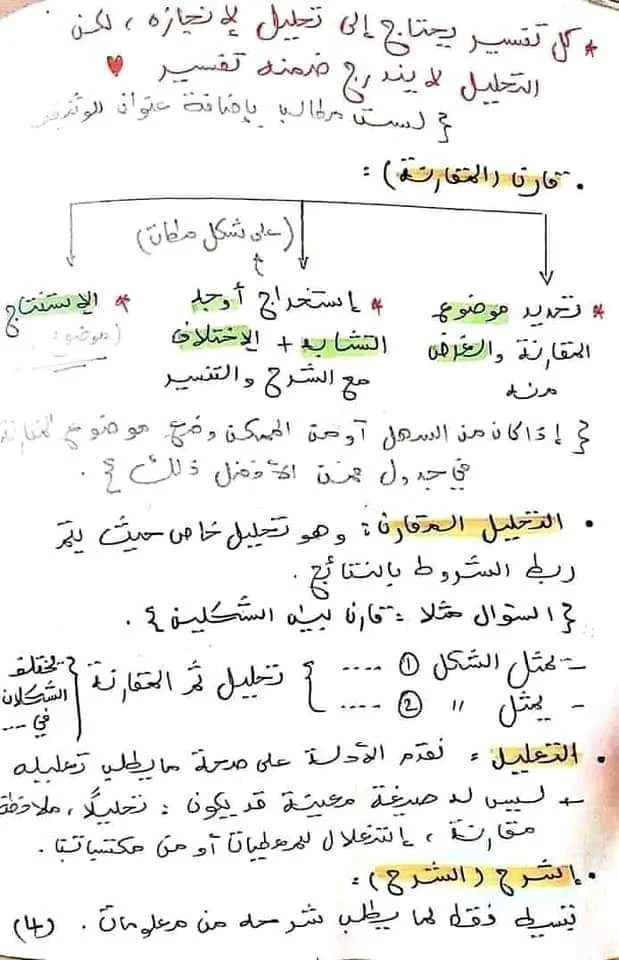 * كل تفسير يحتاج إلى تحليل لإنجازه ، لكن
التحليل لا يندرج ضمنه تفسير ♥
{ لست مطالب بإضافة عنوان
• قارن (المقارنة) :
(على شكل مطات)
* تحديد موضوع المقارنة والغرض منه
* إستخراج أوجه التشابه + الاختلاف مع الشرح والتفسير
* الإستنتاج (موضوع
{ إذا كان من السهل أو من الممكن وضع موضوع المقارنة
في جدول فمن الأفضل ذلك }.
• التحليل المقارن : وهو تحليل خاص حيث يتم
ربط الشروط بالنتائج .
{ السؤال مثلا : قارن بين الشكلين } .
- يمثل الشكل ① ....
- يمثل " ② ....
} تحليل ثم المقارنة
{ يختلف الشكلان في ...
• التعليل : نقدم الأدلة على صحة ما يطلب تعليله
→ ليس له صيغة معينة قد يكون : تحليلًا ، ملاحظة
مقارنة ، إستغلال للمعطيات أو من مكتسباتنا .
• إشرح (الشرح) :
تبسيط فقط لما يطلب شرحه من معلومات . (4)